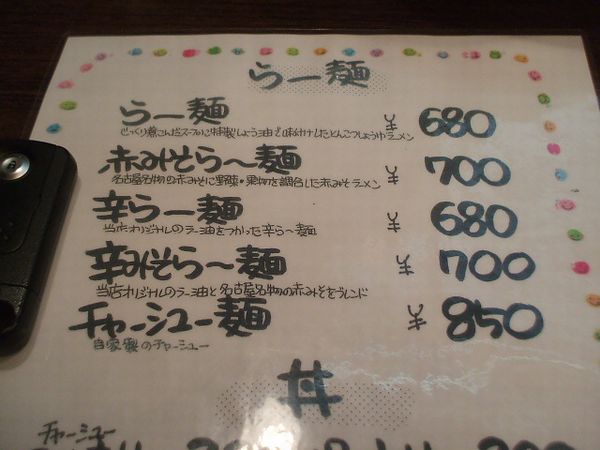 らー麺
らー麺 ¥680
じっくり煮こんだスープに特製しょう油で味付けしたとんこつしょうゆラーメン
赤みそら～麺 ¥700
名古屋名物の赤みそに野菜・果物を調合した赤みそラーメン
辛らー麺 ¥680
当店オリジナルのラー油をつかった辛ら～麺
辛みそら～麺 ¥700
当店オリジナルのラー油と名古屋名物の赤みそをブレンド
チャーシュー麺 ¥850
自家製のチャーシュー
丼
チャーシュー